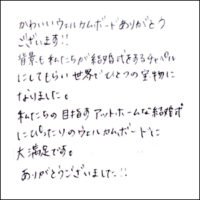 かわいいウェルカムボードありがとう
ございます!!
背景も私たちが結婚式をするチャペル
にしてもらい世界でひとつの宝物に
なりました。
私たちの目指すアットホームな結婚式
にぴったりのウェルカムボードに
大満足です。
ありがとうございました!!